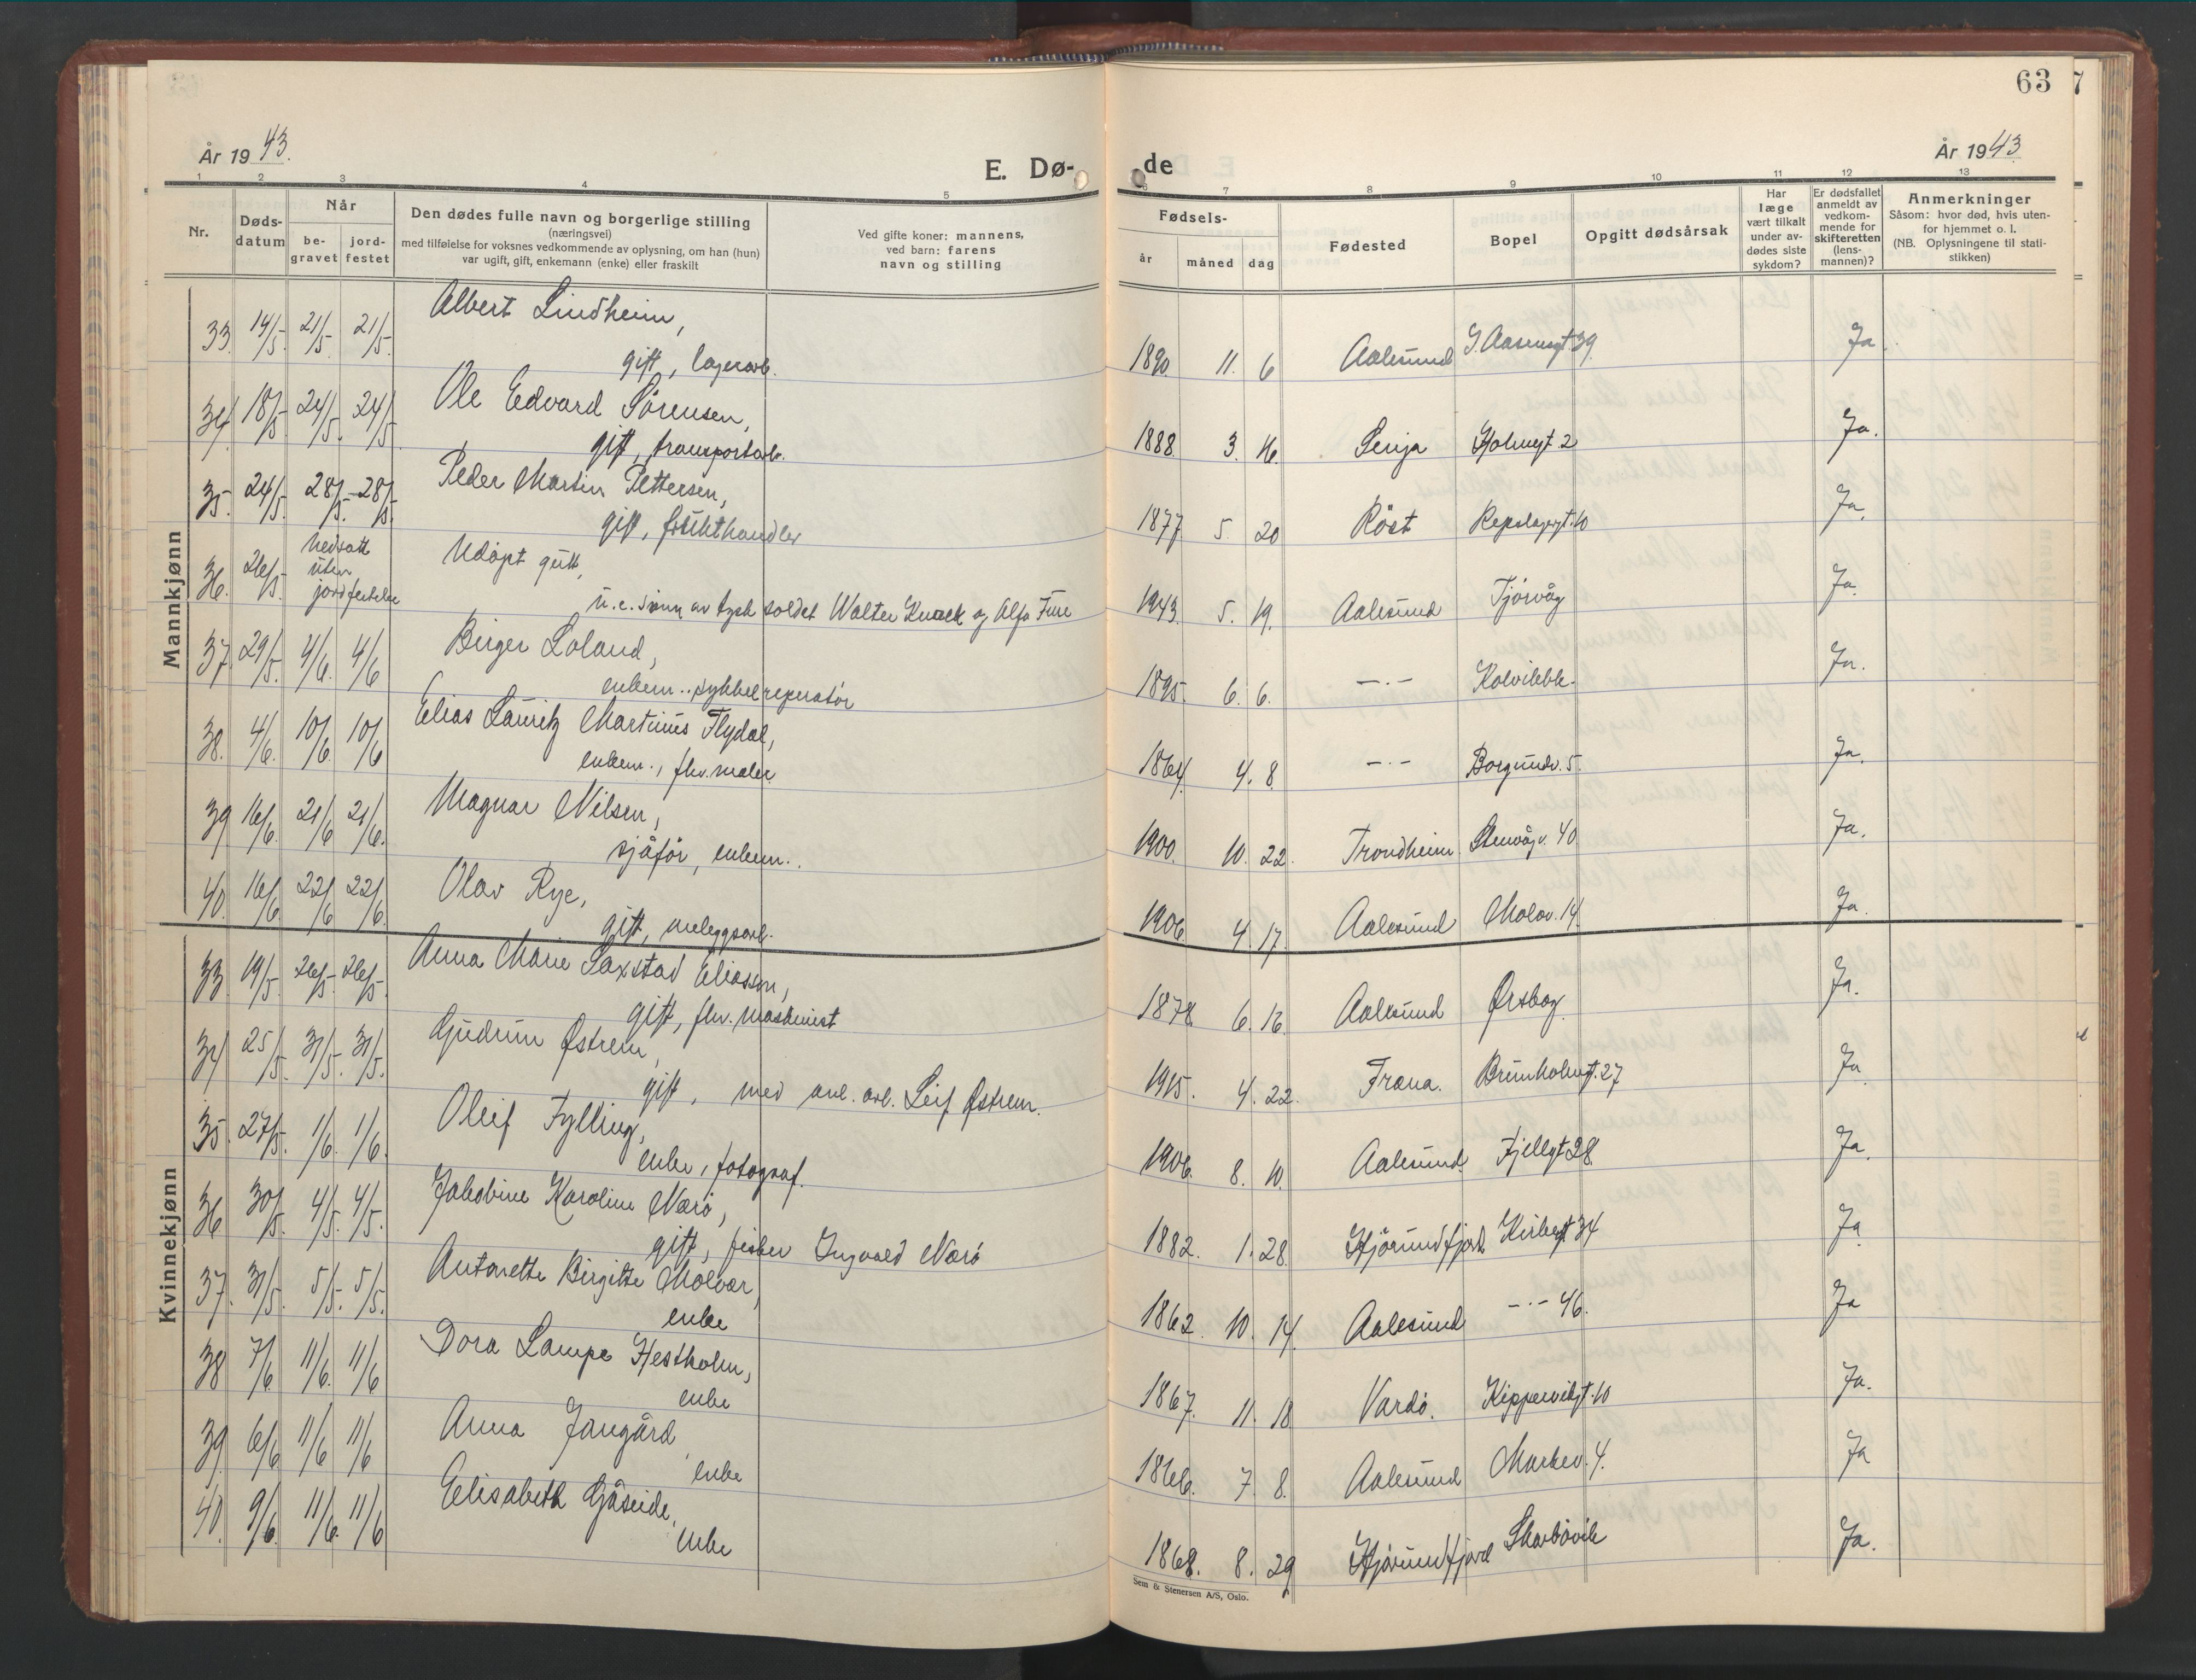 63
År 1943.
E. Dø-
de
År 1943
1 2 3 4 5 6 7 8 9 10 11 12 13
Nr.
Døds-
datum
Når
be-
gravet
jord-
festet
Den dødes fulle navn og borgerlige stilling
(næringsvei)
med tilføielse for voksnes vedkommende av oplysning, om han (hun)
var ugift, gift, enkemann (enke) eller fraskilt
Ved gifte koner: mannens,
ved barn: farens
navn og stilling
Fødsels-
år måned dag
Fødested
Bopel
Opgitt dødsårsak
Har
læge
vært tilkalt
under av-
dødes siste
sykdom?
Er dødsfallet
anmeldt av
vedkom-
mende for
skifteretten
(lens-
mannen)?
Anmerkninger
Såsom: hvor død, hvis uten-
for hjemmet o. l.
(NB. Oplysningene til stati-
stikken)
Mannkjønn
33. 14/5. 21/5. 21/5. Albert Lindheim,
gift, lagerarb. 1890 11. 6 Aalesund I. Aasensgt. 39 Ja
34. 18/5 24/5. 24/5 Ole Edvard Sørensen,
gift, transportarb. 1888 3. 16. Senja Holmgt. 2 Ja.
35. 24/5. 28/5. 28/5. Peder Martin Pettersen,
gift, frukthandler 1877 5. 20 Röst Repslagergt. 10 Ja.
36. 26/5. nedsatt
uten
jordfestelse
Udöpt gutt,
u.e. sönn av tysk soldat Walter Knaek og Alfa Fure 1943. 5. 19. Aalesund Tjörvåg Ja.
37. 29/5. 4/6. 4/6 Birger Loland,
enkem., sykkelreparatör 1895. 6. 6. -"- Kolvikbk. Ja.
38. 4/6. 10/6. 10/6 Elias Lauritz Martinus Flydal,
enkem., fhv. maler 1864. 4. 8 -"- Borgundv. 5. Ja.
39 16/6. 21/6 21/6. Magnar Nilsen,
sjåför, enkem. 1900. 10. 22. Trondheim Stenvågv. 40 Ja.
40. 16/6 22/6 22/6. Olav Rye,
gift, anleggsarb. 1906 4. 17. Aalesund Molov. 14. Ja.
Kvinnekjønn
33 19/5. 26/5. 26/5. Anna Marie Saxstad Eliassen,
gift, fhv. maskinist 1878 6. 16. Aalesund Ørskog. Ja.
34 25/5. 31/5. 31/5. Gudrun Østrem,
gift, med anl. arb. Leif Østrem. 1915. 4. 22. Fræna. Brunholmgt. 27 Ja.
35. 27/5. 1/6. 1/6. Oleif Fylling,
enke, fotograf. 1906. 8. 10. Aalesund Fjellgt 28. Ja.
36 30/5. 4/5. 4/5. Jakobine Karoline Nærö,
gift, fisker Ingvald Nærö 1882. 1. 28. Hjörundfjord Kirkegt 34 Ja
37. 31/5. 5/5. 5/5. Antonette Birgitte Molvær,
enke 1862. 10. 14. Aalesund -"- 46. Ja
38 7/6. 11/6. 11/6 Dora Lampe Hestholm,
enke 1867. 11. 18 Vardö. Kippervikgt. 10 Ja.
39. 6/6 11/6 11/6 Anna Jangård,
enke 1866. 7. 8. Aalesund Markev. 4. Ja
40. 9/6. 11/6. 11/6 Elisabeth Gåseide,
enke 1868. 8. 29 Hjörundfjord Skarbövik Ja.
Sem & Stenersen A/S, Oslo.